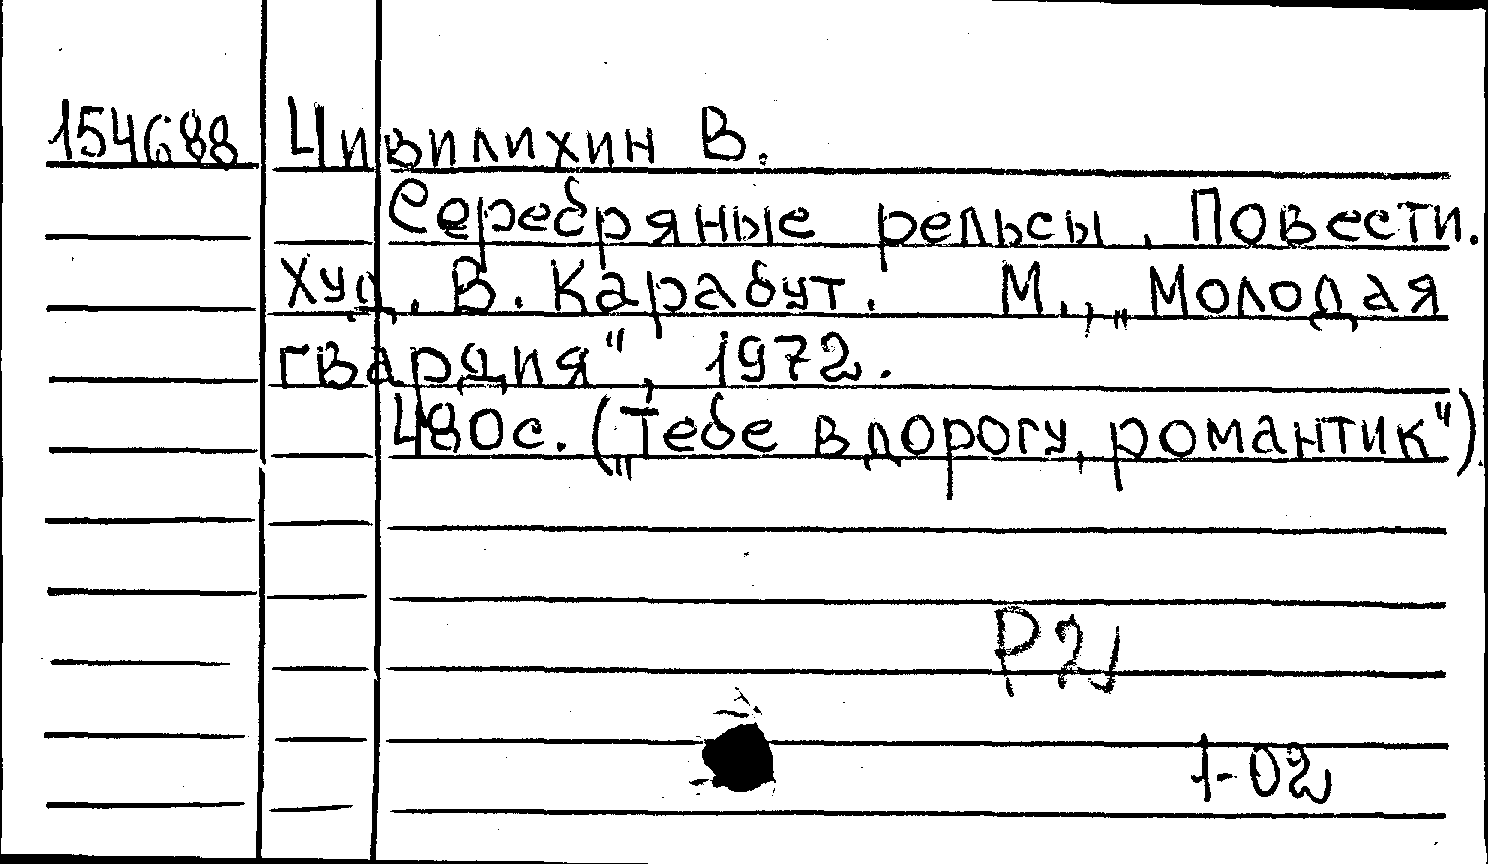 154688 Чивилихин В.
Серебряные рельсы. Повести.
Худ. В. Карабут. М., „Молодая
гвардия", 1972.
480с. („Тебе в дорогу, романтик")
Р2
1-02